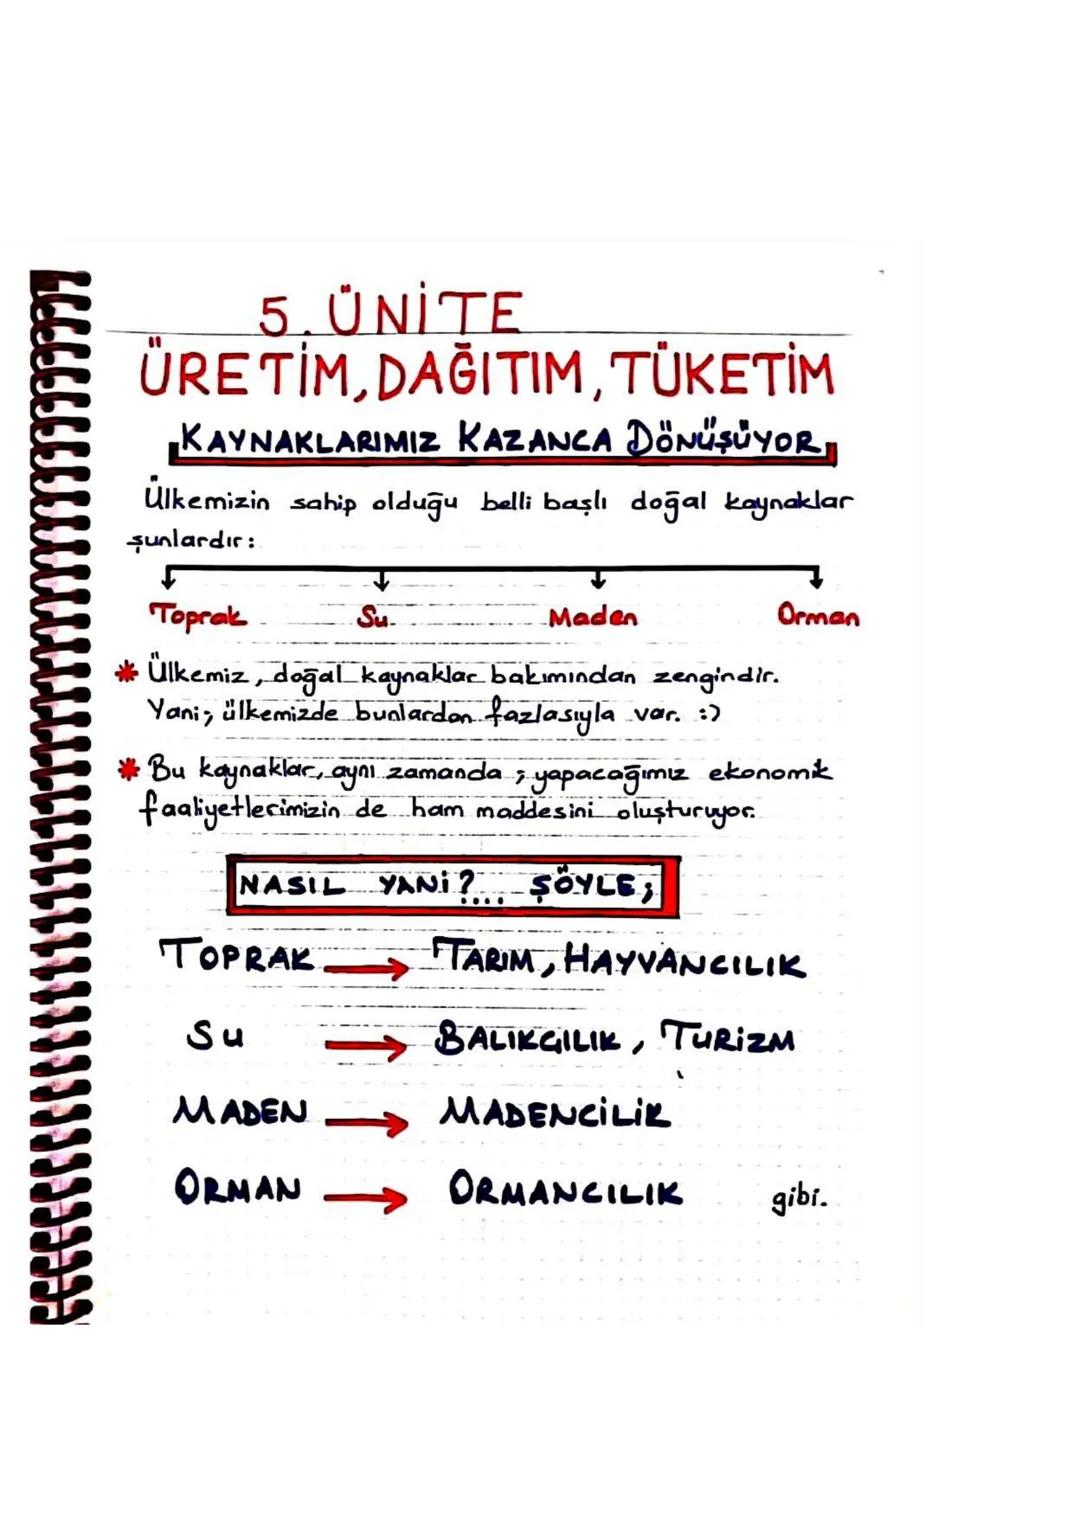 5. ÜNİTE
ÜRETİM, DAĞITIM, TÜKETİM
KAYNAKLARIMIZ KAZANCA DÖNÜŞÜYOR
Ülkemizin sahip olduğu belli başlı doğal kaynaklar
şunlardır:
Toprak Su Maden Orman
* Ülkemiz, doğal kaynaklar bakımından zengindir.
Yani; ülkemizde bunlardan fazlasıyla var. :)
* Bu kaynaklar, aynı zamanda ; yapacağımız ekonomik
faaliyetlerimizin de ham maddesini oluşturuyor.
NASIL YANİ?.... ŞÖYLE;
TOPRAK → TARIM, HAYVANCILIK
SU → BALIKÇILIK, TURİZM
MADEN → MADENCİLİK
ORMAN → ORMANCILIK gibi.